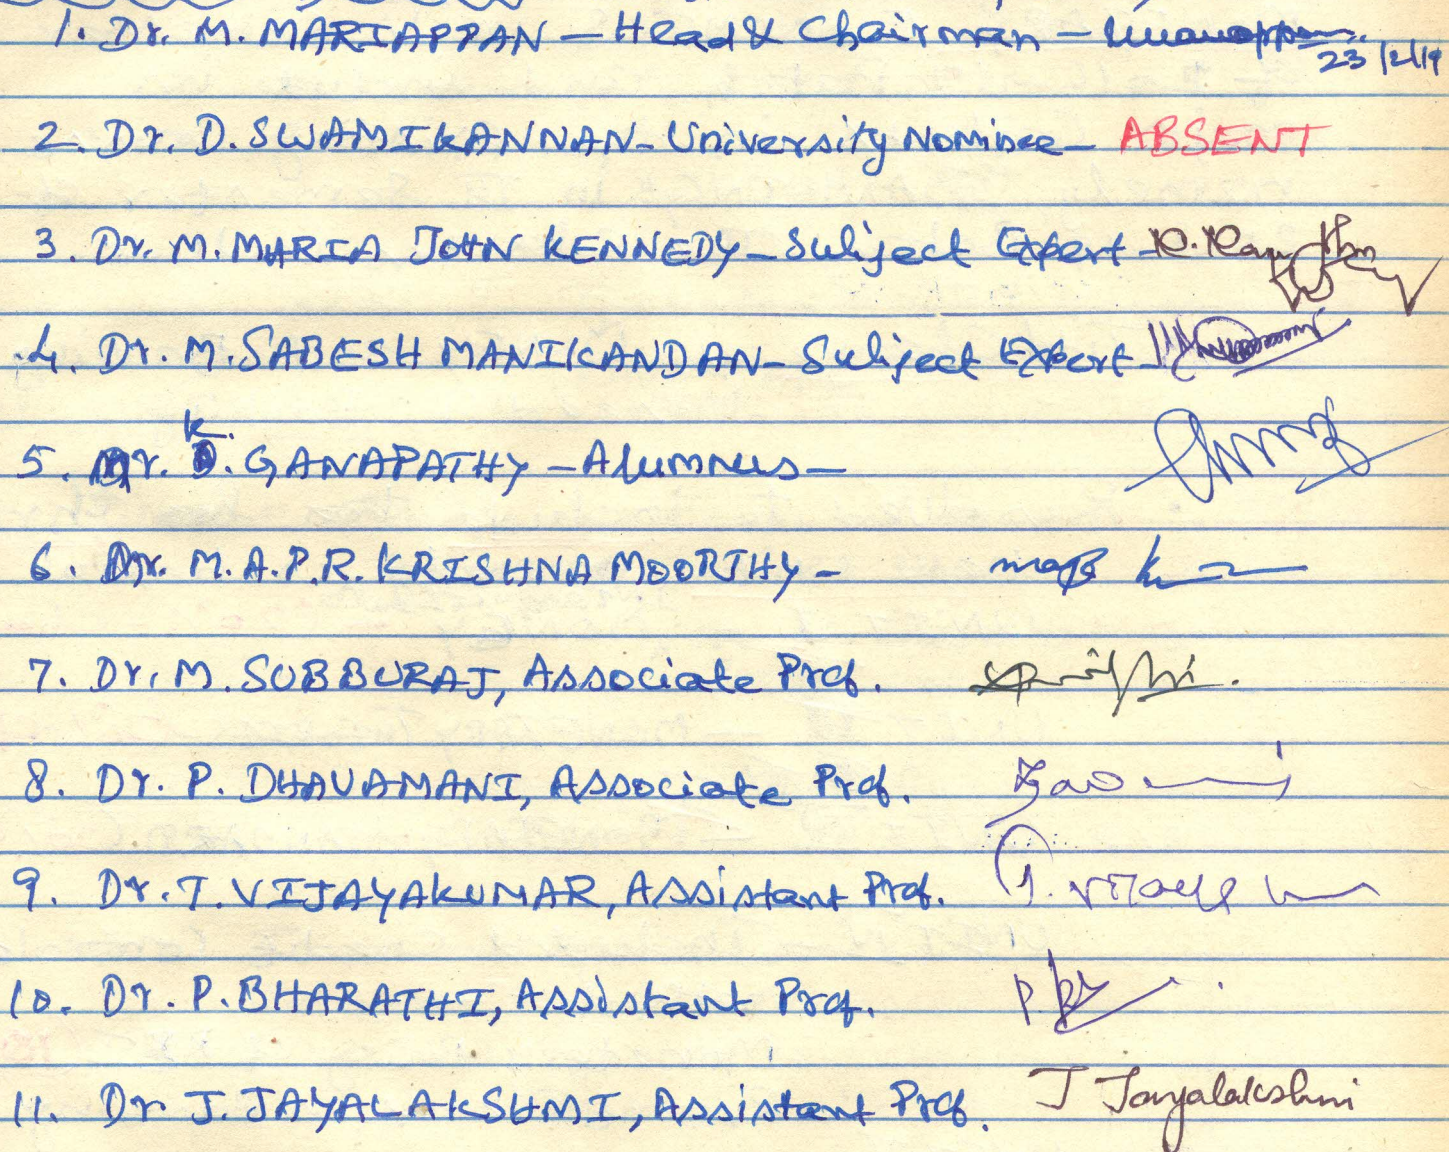 1. Dr. M. MARIAPPAN - Head & Chairman - 23/2/19
2. Dr. D. SWAMIKANNAN - University Nominee - ABSENT
3. Dr. M. MARIA JOHN KENNEDY - Subject Expert -
4. Dr. M. SABESH MANIKANDAN - Subject Expert -
k.
5. Mr. GANAPATHY - Alumnus -
6. Dr. M. A. P. R. KRISHNA MOORTHY -
7. Dr. M. SUBBURAJ, Associate Prof.
8. Dr. P. DHAVAMANI, Associate Prof.
9. Dr. T. VIJAYAKUMAR, Assistant Prof.
10. Dr. P. BHARATHI, Assistant Prof.
11. Dr. J. JAYALAKSHMI, Assistant Prof. J Jayalakshmi